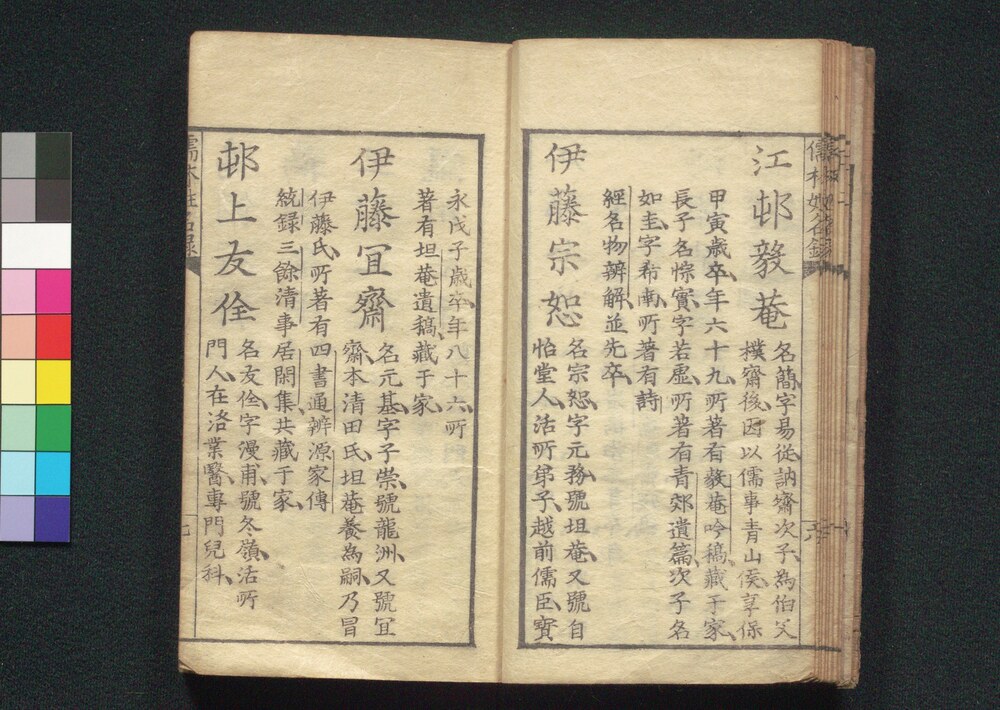 江邨毅菴
名簡字易從訥齋次子為伯父
撲齋後因以儒事青山侯享保
甲寅歳卒年六十九所著有毅菴吟稿藏于家
長子名悰實字若虛所著有青郊遺篇次子名
如圭字希南所著有詩
經名物辨解並先卒
伊藤宗恕
名宗恕字元務號坦菴又號自
怡堂人活所弟子越前儒臣寳
永戊子歳卒年八十六所
著有坦菴遺稿藏于家
伊藤冝齋
名元基字子崇號龍洲又號冝
齋本清田氏坦菴養為嗣乃冒
伊藤氏所著有四書通辨源家傳
統録三餘清事居閑集共藏于家
邨上友佺
名友佺字漫甫號冬嶺活所
門人在洛業醫專門兒科